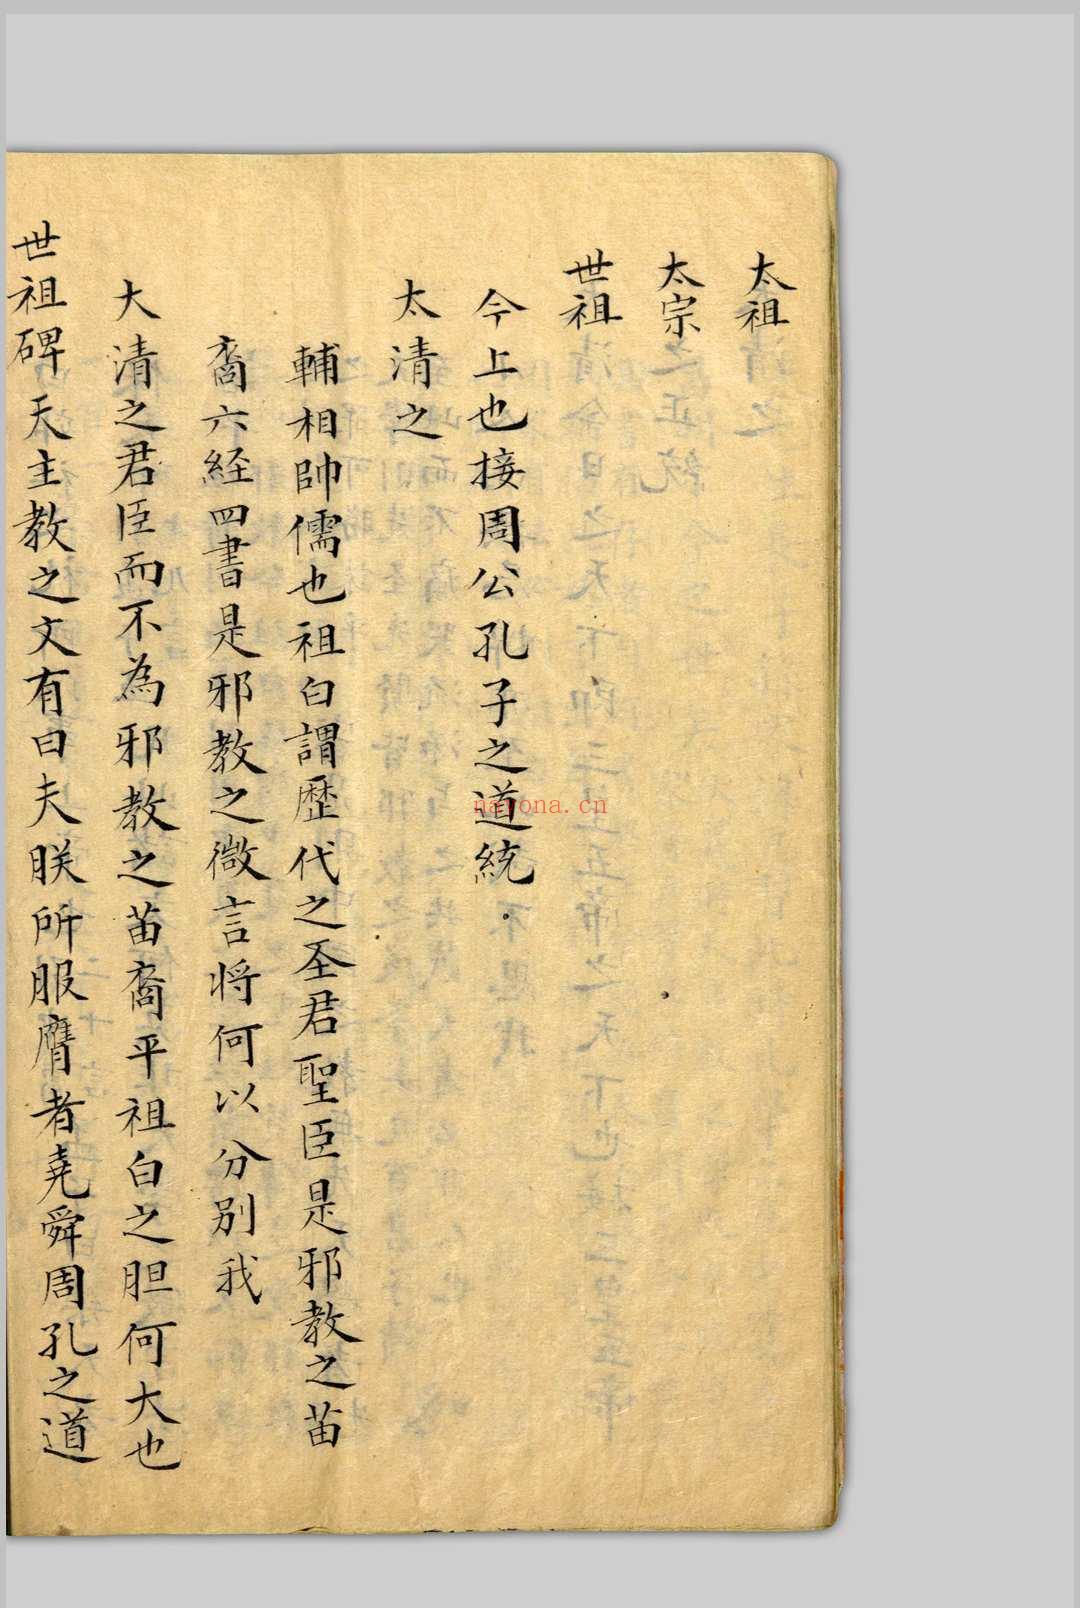 太祖
太宗
世祖
今上也接周公孔子之道統
太清之
輔相帥儒也祖白謂歷代之圣君聖臣是邪教之苗
裔六経四書是邪教之微言将何以分別我
大清之君臣而不為邪教之苗裔乎祖白之胆何大也
世祖碑天主教之文有曰夫朕所服膺者堯舜周孔之道
nayona.cn